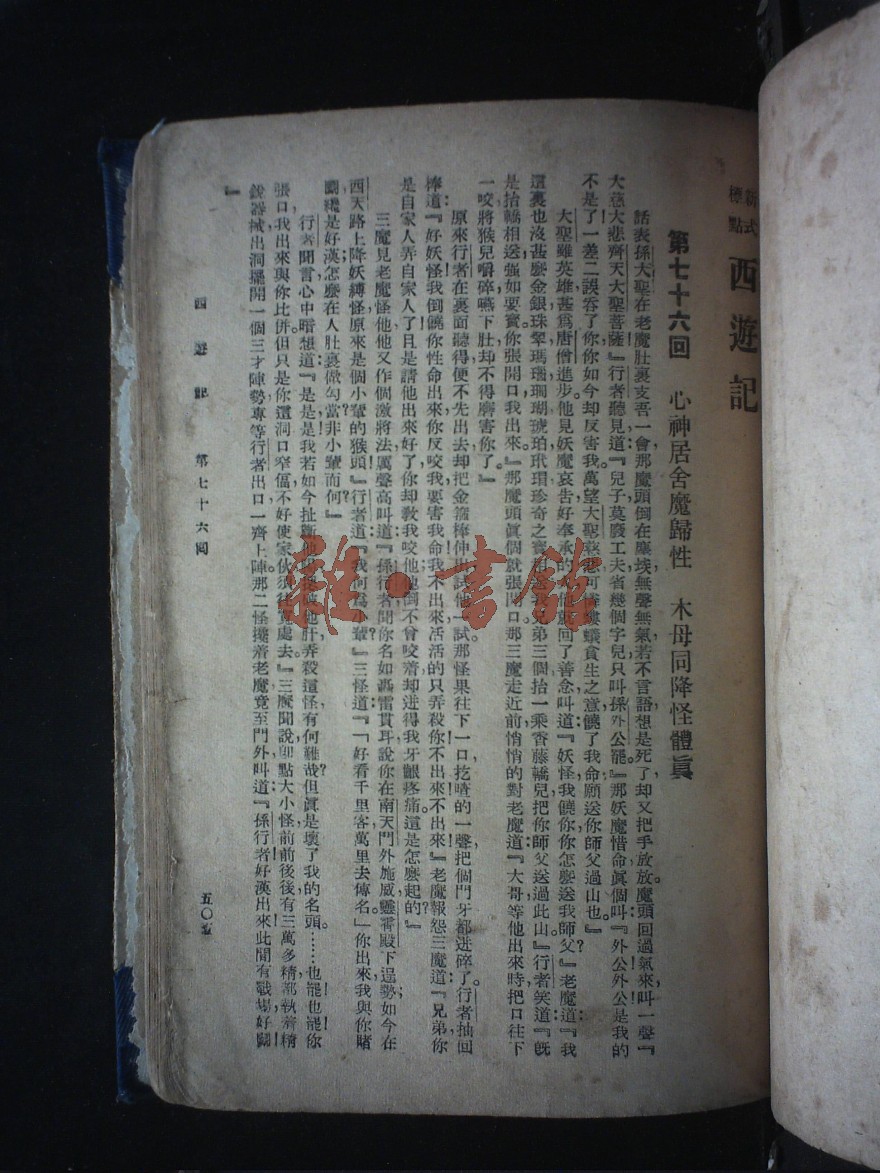 新式
標點
西遊記
第七十六回　心神居舍魔歸性　木母同降怪體眞
話表孫大聖在老魔肚裏支吾一會那魔頭倒在塵埃無聲無氣若不言語想是死了却又把手放放魔頭回過氣來叫一聲『
大慈大悲齊天大聖菩薩』行者聽見道『兒子莫廢工夫省幾個字兒只叫孫外公罷』那妖魔惜命眞個叫『外公外公是我的
不是了一差二誤吞了你你如今却反害我萬望大聖慈悲可憐螻蟻貪生之意饒了我命願送你師父過山也』
大聖雖英雄甚爲唐僧進步他見妖魔哀告好奉承的人他就回了善念叫道『妖怪我饒你你怎麼送我師父』老魔道『我
這裏也沒甚麼金銀珠翠瑪瑙珊瑚琥珀玳瑁珍奇之寶相送我兄弟三個抬一乘香藤轎兒把你師父送過此山』行者笑道『旣
是抬轎相送强如要寶你張開口我出來』那魔頭眞個就張開口那三魔走近前悄悄的對老魔道『大哥等他出來時把口往下
一咬將猴兒嚼碎嚥下肚却不得磨害你了』
原來行者在裏面聽得便不先出去却把金箍棒伸出試他一試那怪果往下一口扢喳的一聲把個門牙都迸碎了行者抽回
棒道『好妖怪我倒饒你性命出來你反咬我要害我命我不出來活活的只弄殺你不出來不出來』老魔報怨三魔道『兄弟你
是自家人弄自家人了且是請他出來好了你却教我咬他他倒不曾咬着却迸得我牙齦疼痛這是怎麼起的』
三魔見老魔怪他他又作個激將法厲聲高叫道『孫行者聞你名如轟雷貫耳說你在南天門外施威靈霄殿下逞勢如今在
西天路上降妖縛怪原來是個小輩的猴頭』行者道『我何爲小輩』三怪道『「好看千里客萬里去傳名」你出來我與你賭
鬭纔是好漢怎麼在人肚裏做勾當非小輩而何』
行者聞言心中暗想道『是是是我若如今扯斷他腸揌破他肝弄殺這怪有何難哉但眞是壞了我的名頭……也罷也罷你
張口我出來與你比併但只是你這洞口窄偪不好使家伙須往寬處去』三魔聞說卽點大小怪前前後後有三萬多精都執着精
銳器械出洞擺開一個三才陣勢專等行者出口一齊上陣那二怪攙着老魔竟至門外叫道『孫行者好漢出來此間有戰場好鬭
』
西遊記　第七十六回
五〇五
雜·書館